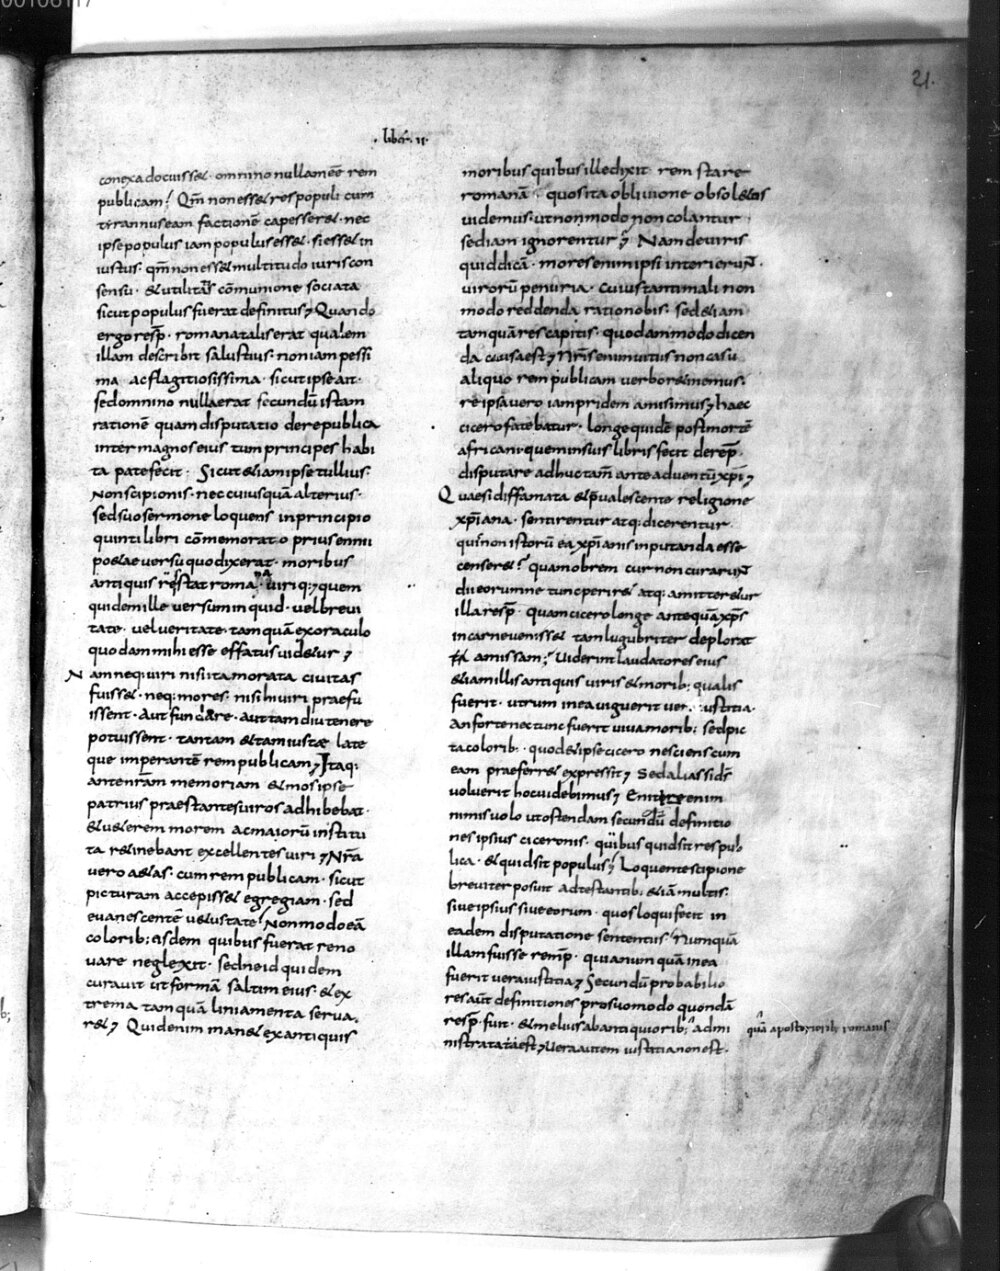 00106117
21.
· liber · II ·
conexa docuisset · omnino nullam eē rem
publicam; Qm̄ non esset res populi cum
tirannus eam factionē capesseret · nec
ipse populus iam populus esset · si esset in
iustus · qm̄ non esset multitudo iuris con
sensu · & utilitatis cōmunione sociata
sicut populus fuerat definitus; Quando
ergo resp̄ · romana talis erat qualem
illam describit salustius · non iam pessi
ma ac flagitiosissima · sicut ipse ait ·
sed omnino nulla erat secundū istam
rationē quam disputatio de republica
inter magnos eius tum principes habi
ta patefecit · Sicut &iam ipse tullius ·
Non scipionis · nec cuiusquā alterius ·
sed suo sermone loquens in principio
quinti libri cōmemorato prius ennii
po&ae uersu quo dixerat · moribus
antiquis res stat romana uirisq; quem
quidem ille uersum inquid · uel breui
tate · uel ueritate · tamquā ex oraculo
quodam mihi esse effatus uidetur;
Nam neq; uiri nisi ita morata ciuitas
fuiss& · neq; mores · nisi hi uiri praefu
issent · Aut fundare · aut tam diu tenere
potuissent · tantam & tam iustae late
que imperantē rem publicam; Itaq:
ante nr̄am memoriam & mos ipse
patrius praestantes uiros adhibebat ·
& u&erem morem ac maiorū institu
ta r&inebant excellentes uiri; Nr̄a
uero a&as · cum rem publicam · sicut
picturam accepiss& egregiam · sed
euanescentē u&ustate; Non modo eā
colorib; eisdem quibus fuerat reno
uare neglexit · sed ne id quidem
curauit ut formā saltim eius · & ex
trema tamquā liniamenta serua
r&; Quid enim man& ex antiquis
moribus quibus ille dixit rem stare
romanā · quos ita obliuione obsol&os
uidemus · ut non modo non colantur
sed iam ignorentur; Nam de uiris
quid dicā · mores enim ipsi interierun̄t ·
uirorū penuria · cuius tanti mali non
modo reddenda ratio nobis · sed &iam
tamquā res capitis · quodammodo dicen
da causa est; Nr̄is enim uitiis non casu
aliquo rem publicam uerbo r&inemus ·
re ipsa uero iam pridem amisimus; haec
cicero fatebatur · longe quidē post mortē
africani · quem in suis libris fecit de rep̄ ·
disputare adhuc tam̄ ante aduentū xp̄i;
Quae si diffamata & p̄ualescente religione
xp̄iana · sentirentur atq; dicerentur
quis non istorū ea xp̄ianis inputanda esse
censer&; quam obrem cur non curarun̄t
dii eorum ne tunc perir& atq; amitter&ur
illa resp̄ · quam cicero longe antequā xp̄s
in carne uenisset tam lugubriter deplorat
amissam; Uiderint laudatores eius
&iam illis antiquis uiris & morib; qualis
fuerit · utrum in ea uiguerit uera iustitia ·
an forte nec tunc fuerit uiua morib; sed pic
ta colorib; · quod & ipse cicero nesciens cum
eam praeferr& expressit; Sed alias si ds̄
uoluerit hoc uidebimus; Enitar enim
in suo loco ut ostendam secundū definitio
nes ipsius ciceronis · quibus quid sit res pub
lica · & quid sit populus; Loquente scipione
breuiter posuit adtestantib; &iā multis ·
siue ipsius siue eorum · quos loqui fecit in
eadem disputatione sententiis; Numquā
illam fuisse remp̄ · quia numquā in ea
fuerit uera iustitia; Secundū probabilio
res aut̄ definitiones pro suo modo quodā
resp̄ fuit · & melius ab antiquiorib; admi
nistrata ē; Uera autem iustitia non est ·
quā a posteriorib; romanis